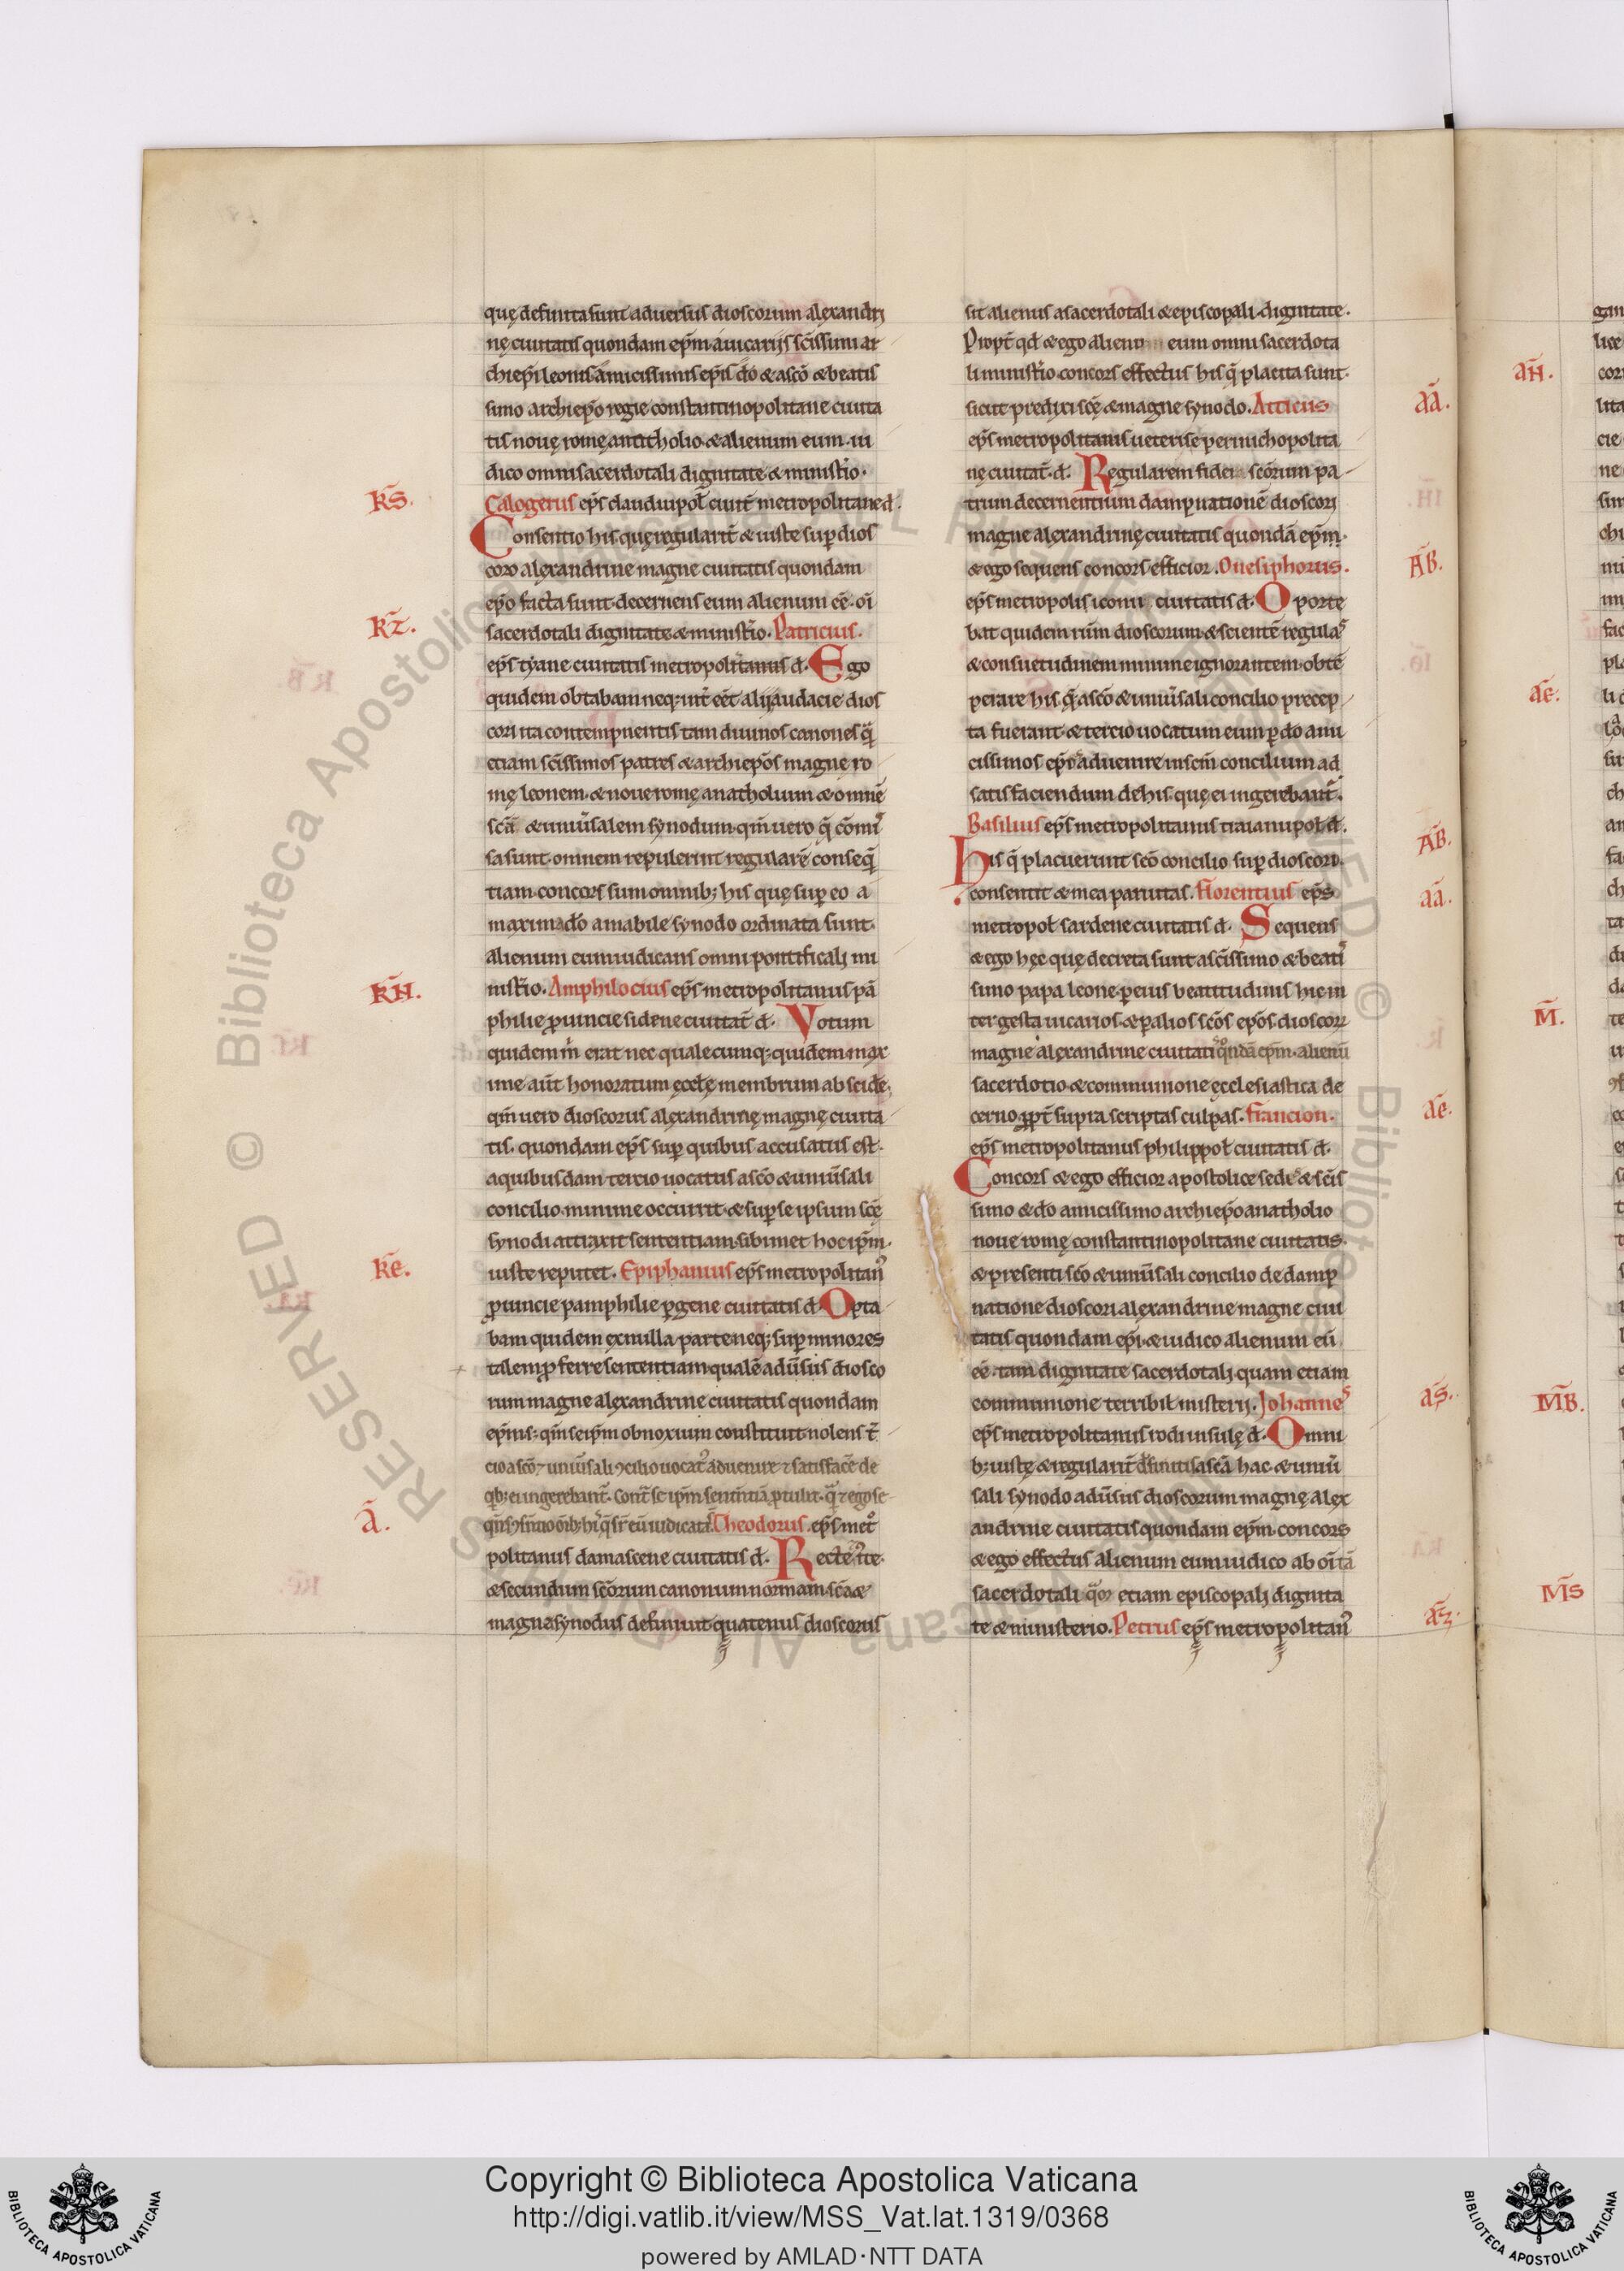 quę definita sunt aduersus dioscorum alęxandri
nę ciuitatis quondam ep̄m a uicarijs sc̄issimi ar
chiep̄i leonis amicissimis ep̄is dō & a scō & beatis
simo archiep̄o regie constantinopolitane ciuita
tis nouę romę anatholio & alienum eum iu
dico omni sacerdotali dignitate & minist̄io.
K̄S.
Calogerus ep̄s claudiupol̄ ciuit̄ metropolitane d̄.
Consentio his quę regularit̄ & iuste sup̄ dios
coro alęxandrine magne ciuitatis quondam
ep̄o facta sunt decernens eum alienum eē oī
K̄Z.
sacerdotali dignitate & minist̄io. Patricius.
ep̄s tyane ciuitatis metropolitanus d̄. Ego
quidem obtabam neq; int̄ eēt alij audacie dios
cori ita contempnentis tam diuinos canones q̄
etiam sc̄issimos patres & archiep̄os magnę ro
mę leonem & noue romę anatholium & omnē
scā & uniūsalem synodum. qm̄ uero q̄ cōmī
sa sunt omnem repulerint regularē conseq̄
tiam. concors sum omnib; his quę sup̄ eo a
maxima dō amabile synodo ordinata sunt.
alienum eum iudicans omni pontificali mi
K̄H.
nist̄io. Amphilocius ep̄s metropolitanus pā
philie ꝓuincie sidene ciuitat̄ d̄. Votum
quidem m̄ erat nec qualecumq; quidem max
ime aūt honoratum ęcclę membrum abscide
qm̄ uero dioscorus alęxandrinę magnę ciuita
tis. quondam ep̄s sup̄ quibus accusatus est.
a quibusdam tercio uocatus a scō & uniūsali
concilio minime occurrit & sup̄ se ipsum scę̄
synodi attraxit sententiam. sibimet hoc ip̄m.
K̄E.
iuste reputet. Epiphanius ep̄s metropolitan᾽
ꝓuincie pamphilie ꝑgene ciuitatis d̄. Opta
bam quidem ęx nulla parte neq; sup̄ minores
talem ꝓferre sententiam qualē adūsus diosco
rum magne alęxandrine ciuitatis quondam
ep̄m s; qm̄ seip̄m obnoxium constituit nolens t̄
cio a scō ⁊ uniūsali ꝯcilio uocat᾽ aduenire ⁊ satisfacē de
qb; ei ingerebant̄. cont̄ se ip̄m sentn̄tiā ꝓtulit. ⁊ ego se
Ā.
Theodorus ep̄s met᾽
politanus damascene ciuitatis d̄. Recte
& secundum scōrum canonum normam scā &
magna synodus definiuit quatenus dioscorus
sit alienus a sacerdotali & episcopali dignitate.
Propt̄ qd̄ & ego alieno eum omni sacerdota
li minist̄io concors effectus his q̄ placita sunt.
ĀĀ.
sicut predixi scę̄ & magne synodo. Atticus
ep̄s metropolitanus ueteris epernichopolita
nę ciuitat̄ d̄. Regularem fidei scōrum pa
trum decernentium dampnationē dioscori
magne alęxandrinę ciuitatis quondā ep̄m.
ĀB̄.
& ego sequens concors efficior. Onesiphorus.
ep̄s metropolis iconii ciuitatis d̄. Oporte
bat quidem dioscorum & scientē regulas
& consuetudinem minime ignorantem obtē
perare his q̄ a scō & uniūsali concilio precep
ta fuerant & tercio uocatum eum ꝑ dō ami
cissimos ep̄os aduenire in scm̄ concilium ad
satisfaciendum de his quę ei ingerebant̄.
ĀB̄.
Basilius ep̄s metropolitanus traianupol̄ d̄.
His q̄ placuerunt scō concilio sup̄ dioscoro.
ĀĀ.
consentit & mea paruitas. Florentius ep̄s
metropol̄ sardene ciuitatis d̄. Sequens
& ego hęc quę decreta sunt a sc̄issimo & beatī
simo papa leone ꝑ eius beatitudinis hic in
ter gesta uicarios & ꝑ alios scōs ep̄os dioscorū
magne alęxandrine ciuitatis qn̄dā ep̄m. alienū
sacerdotio & communione ęcclesiastica de
ĀĒ.
cerno ꝓpt̄ supra scriptas culpas. Francion.
ep̄s metropolitanus philippol̄ ciuitatis d̄.
Concors & ego efficior apostolice sedi & sc̄is
simo & dō amicissimo archiep̄o anatholio
noue romę constantinopolitane ciuitatis.
& presenti scō & uniūsali concilio de damp
natione dioscori alęxandrine magne ciui
tatis quondam ep̄i & iudico alienum eū
eē tam dignitate sacerdotali quam etiam
ĀS̄.
communione terribil̄ misterij. Johannes
ep̄s metropolitanus rodi insulę d̄. Omni
b; iustę & regularit̄ definitis a scā hac & uniū
sali synodo adūsus dioscorum magnę alęx
andrine ciuitatis quondam ep̄m concors
& ego effectus alienum eum iudico ab oī tā
sacerdotali etiam episcopali dignita
ĀZ̄.
te & ministerio. Petrus ep̄s metropolitan᾽
ĀH̄.
ĀĒ.
M̄.
M̄B̄.
M̄S
Copyright © Biblioteca Apostolica Vaticana
http://digi.vatlib.it/view/MSS_Vat.lat.1319/0368
powered by AMLAD·NTT DATA
BIBLIOTECA APOSTOLICA VATICANA
BIBLIOTECA APOSTOLICA VATICANA